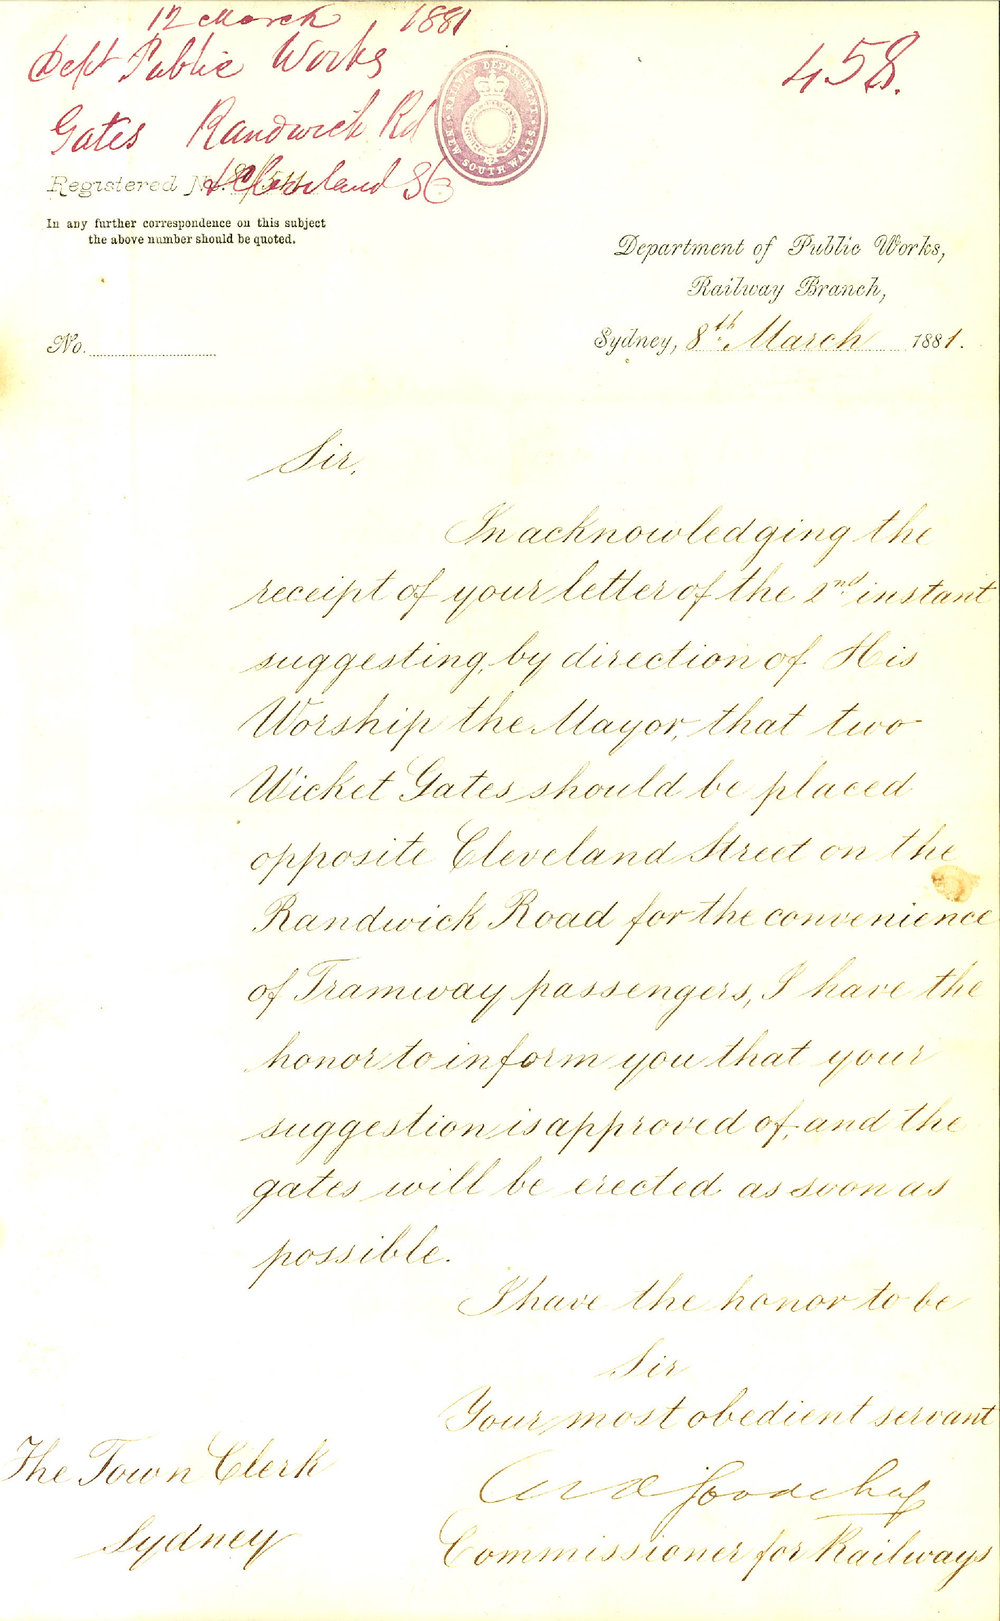 12 March 1881
Dept Public Works
458.
Gates Randwick Rd
& Cleveland St
RAILWAY DEPARTMENT
NEW SOUTH WALES
Registered No.
In any further correspondence on this subject
the above number should be quoted.
Department of Public Works,
Railway Branch,
No.
Sydney, 8th March 1881.
Sir,
In acknowledging the
receipt of your letter of the 2nd instant
suggesting, by direction of His
Worship the Mayor, that two
Wicket Gates should be placed
opposite Cleveland Street on the
Randwick Road for the convenience
of Tramway passengers, I have the
honor to inform you that your
suggestion is approved of, and the
gates will be erected as soon as
possible.
I have the honor to be
Sir
Your most obedient servant
The Town Clerk
Sydney
Commissioner for Railways